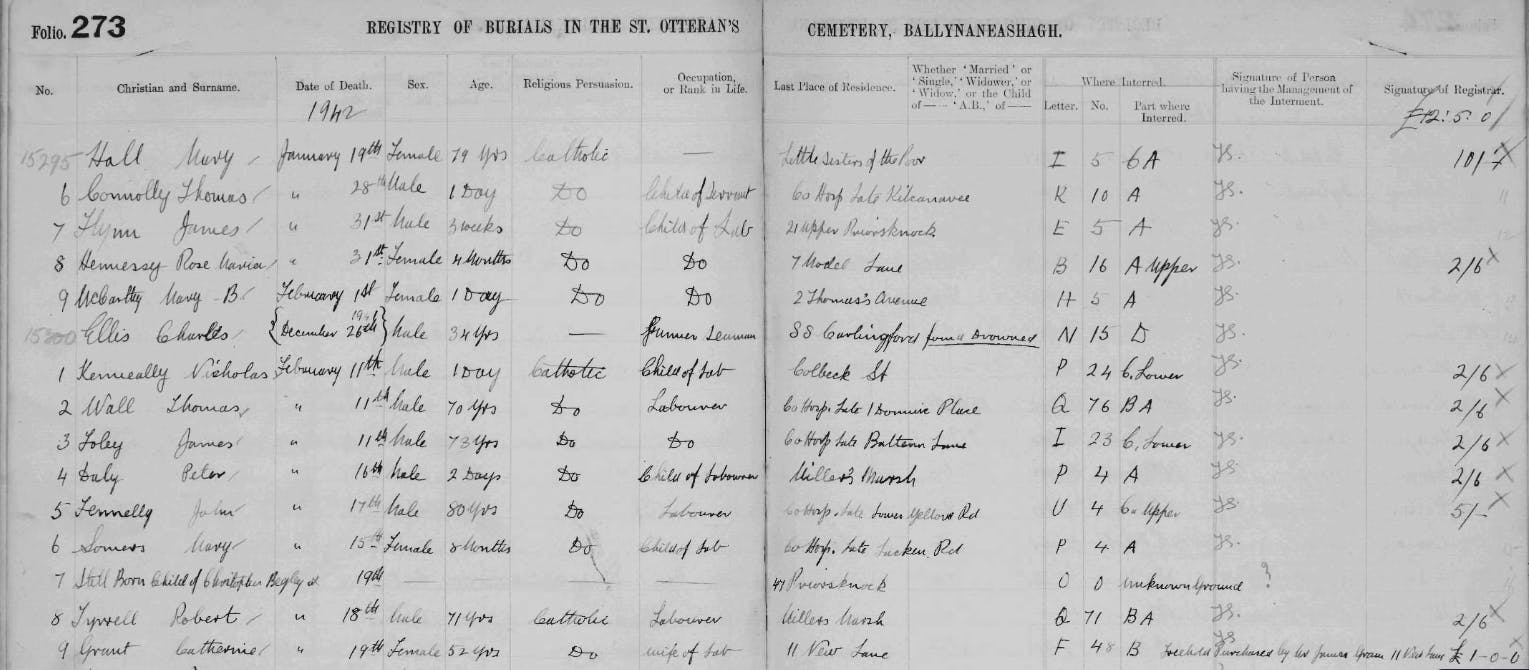 Folio. 273 REGISTRY OF BURIALS IN THE ST. OTTERAN'S CEMETERY, BALLYNANEASHAGH.
No. Christian and Surname. Date of Death. Sex. Age. Religious Persuasion. Occupation, or Rank in Life. Last Place of Residence. Whether 'Married' or 'Single,' 'Widower,' or 'Widow,' or the Child of —— 'A.B.,' of —— Where Interred. Letter. No. Part where Interred. Signature of Person having the Management of the Interment. Signature of Registrar.
1942 £12: 5: 0
15295 Hall Mary January 19th Female 79 Yrs Catholic — Little Sisters of the Poor I 5 6 A JS. 10/-
6 Connolly Thomas " 28th Male 1 Day Do Child of Servant Co Hosp Late Kilcanavee K 10 A JS.
7 Flynn James " 31st Male 3 weeks Do Child of Lab 21 Upper Priorsknock E 5 A JS.
8 Hennessy Rose Maria " 31st Female 4 Months Do Do 7 Model Lane B 16 A Upper JS. 2/6
9 McCarthy Mary B. February 1st Female 1 Day Do Do 2 Thomas's Avenue H 5 A JS.
15300 Ellis Charles {December 1941 26th} Male 34 Yrs — Gunner Seaman SS Carlingford found Drowned N 15 D JS.
1 Kenneally Nicholas February 11th Male 1 Day Catholic Child of Lab Colbeck St P 24 C. Lower JS. 2/6
2 Wall Thomas " 11th Male 70 Yrs Do Labourer Co Hosp. Late 1 Place Q 76 B A JS. 2/6
3 Foley James " 11th Male 73 Yrs Do Do Co Hosp Late Lane I 23 C. Lower JS. 2/6
4 Daly Peter " 16th Male 2 Days Do Child of Labourer Miller's Marsh P 4 A JS. 2/6
5 Fennelly John " 17th Male 80 Yrs Do Labourer Co Hosp. Late Lower Yellow Rd U 4 Upper JS. 5/-
6 Somers Mary " 15th Female 8 Months Do Child of Lab Co Hosp. Late Lacken Rd P 4 A JS.
7 Still Born Child of Christopher Begley at 19th — — — 47 Priorsknock O 0 unknown Ground ?
8 Tyrrell Robert " 18th Male 71 Yrs Catholic Labourer Millers Marsh Q 71 B A JS. 2/6
9 Grant Catherine " 19th Female 52 Yrs Do wife of Lab 11 New Lane F 48 B JS Freehold Purchased by Mr James Grant 11 New Lane £ 1-0-0